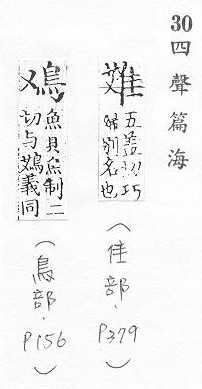 30 四聲篇海
五蓋切巧
婦別名也
(佳部.P379)
魚貝魚制二
切与鴱義同
(鳥部.P156)